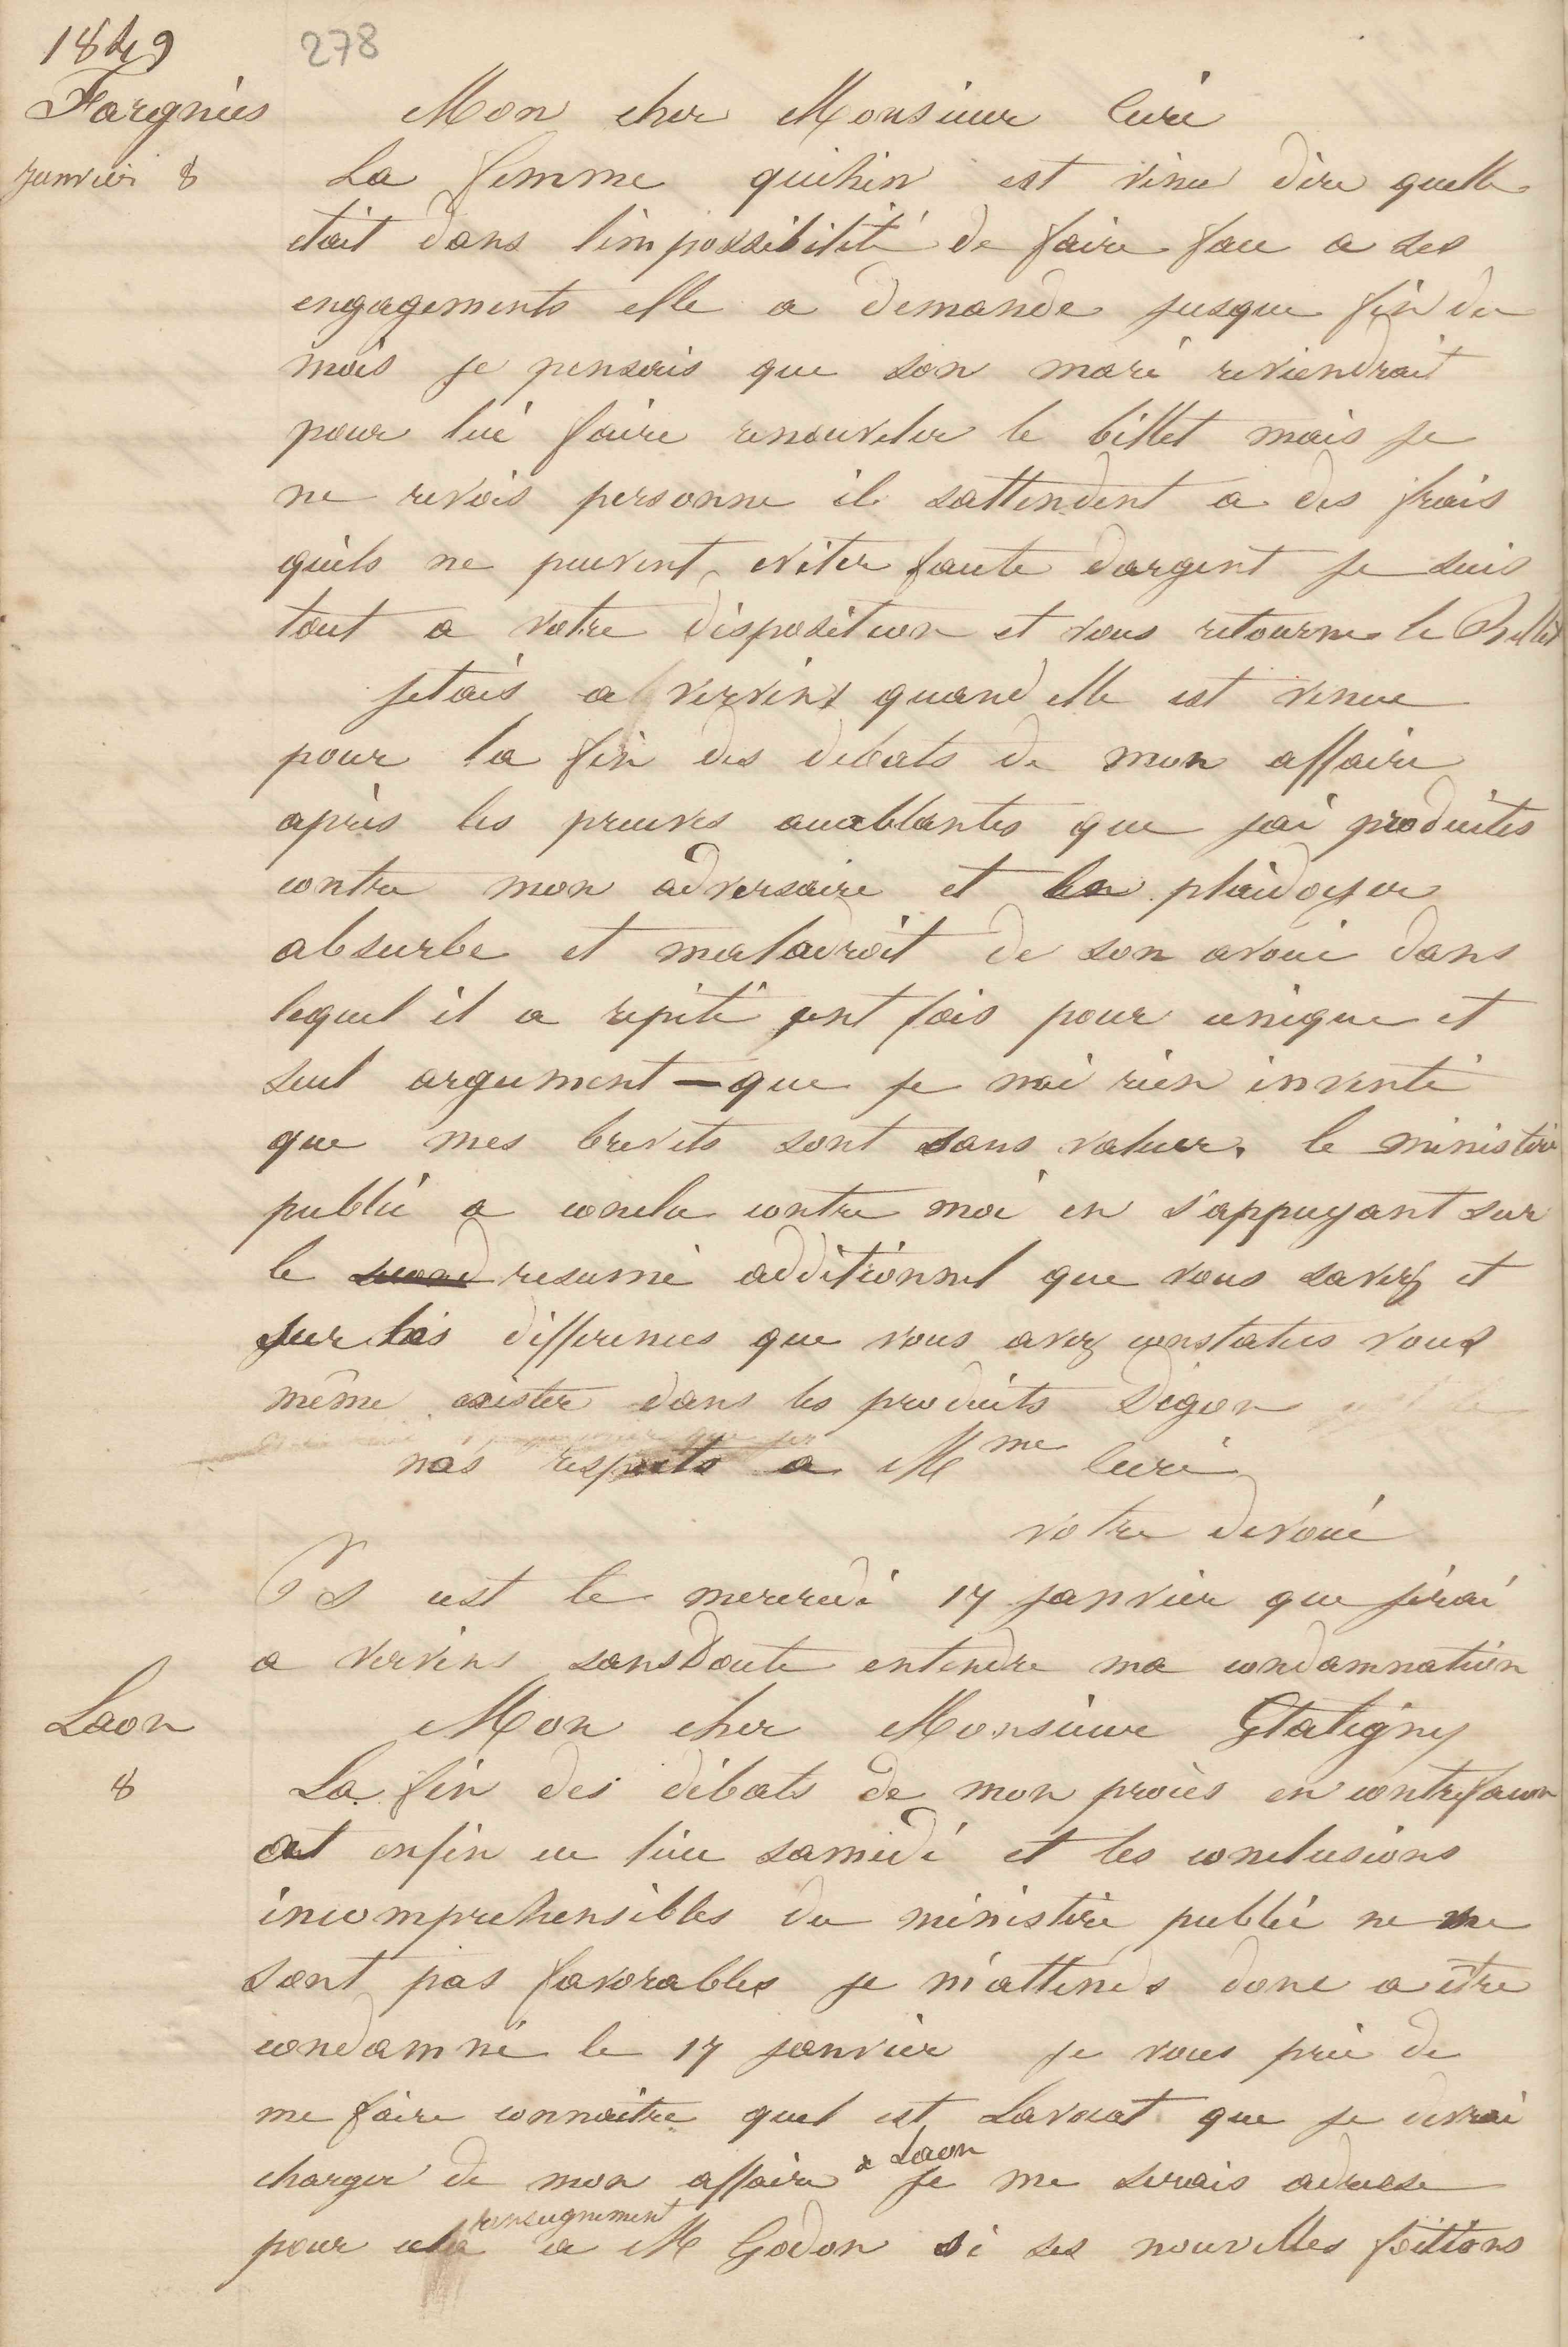 1849
278
Fargniès
Mon cher Monsieur Curé
janvier 8
La femme quihin est venu dire quelle
etait dans limpossibilité de faire face a ses
engagements elle a demande jusque fin du
mois je pensais que son mari reviendrait
pour lui faire renouveler le billet mais je
ne revois personne il sattendent a des frais
quils ne peuvent eviter faute dargent je suis
tout a votre disposition et vous retourne le Billet
jetais a vervins quand elle est venue
pour la fin des debats de mon affaire
après les preuves accablantes que jai produites
contre mon adversaire et le plaidoyer
absurbe et maladroit de son avoué dans
lequel il a repété cent fois pour unique et
seul argument — que je nai rien inventé
que mes brevets sont sans valeur. le ministère
public a conclu contre moi en s'appuyant sur
le second resumé additionnel que vous savez et
sur les differences que vous avez constatées vous
même exister dans les produits Degon
nos respects a Mme Curé
votre devoué
PS cest le mercredi 17 janvier que jirai
a vervins sans Doute entendre ma condamnation
Laon
Mon cher Monsieur Gtaligny
8
La fin des débats de mon procès en contrefacon
ont enfin eu lieu samedi et les conclusions
incomprehensibles du ministère public ne me
sont pas favorables je m'attends donc a être
condamné le 17 janvier je vous prie de
me faire connaitre quel est Lavocat que je devrai
charger de mon affaire a Laon je me serais adresse
pour ce renseignement a M Godon si ses nouvelles foittions